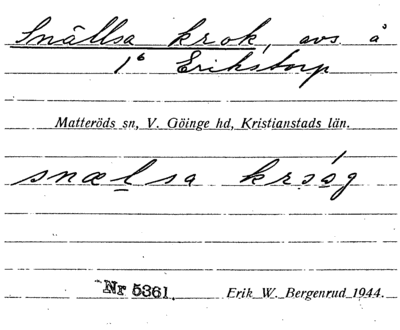 Snällsa krok, avs. å
1⁶ Erikstorp
Matteröds sn, V. Göinge hd, Kristianstads län.
snælsa krɔåg
Nr 5361.
Erik W. Bergenrud 1944.